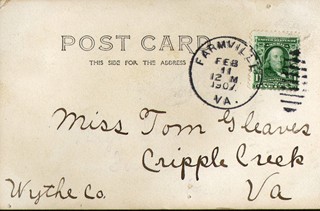 POST CARD
THIS SIDE FOR THE ADDRESS
FARMVILLE
FEB
11
12 M
1907
VA.
Miss Tom Gleaves
Cripple Creek
Wythe Co. Va